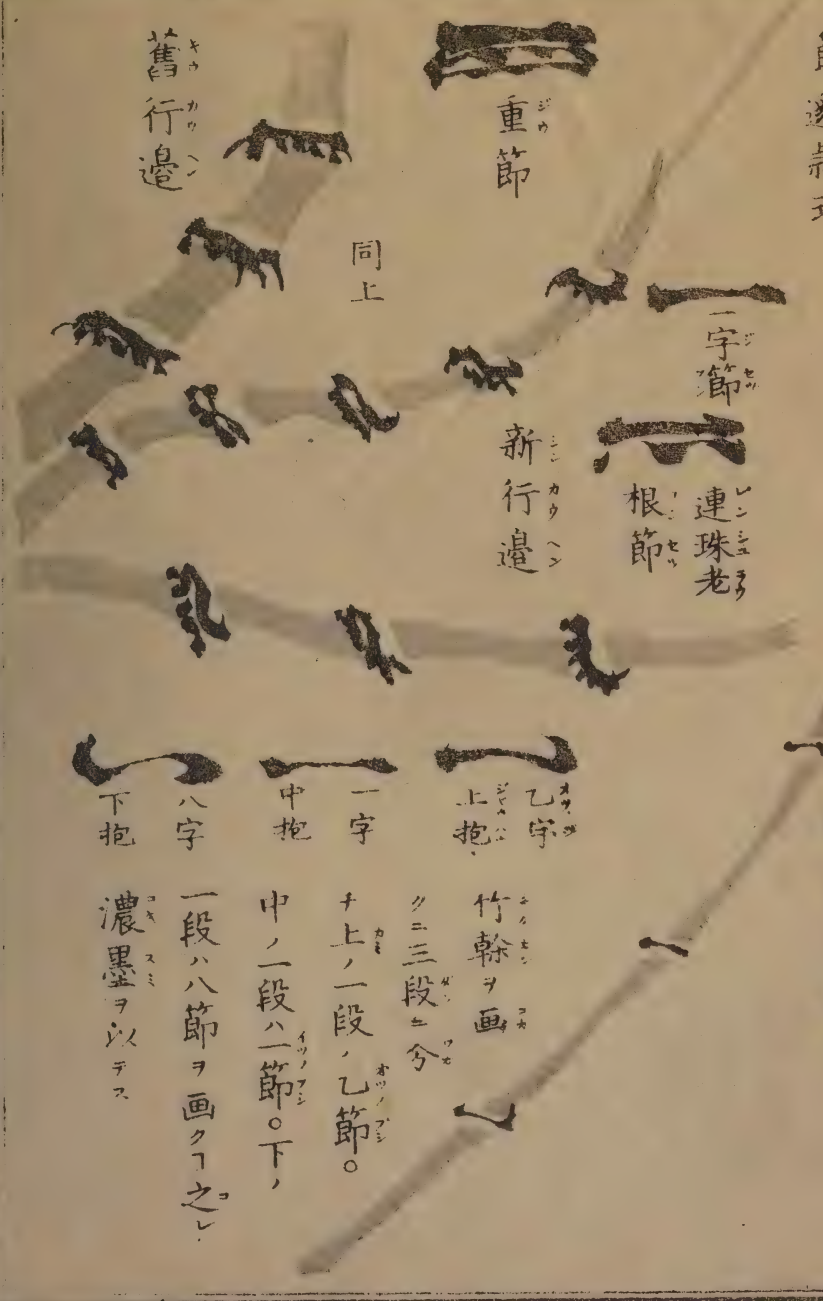 重節
一字節
連珠老
根節
新行邉
同上
舊行邉
乙字
上抱
一字
中抱
八字
下抱
竹幹ヲ画
クニ三段ニ分
チ上ノ一段ノ乙節。
中ノ一段ハ一節。下ノ
一段ハ八節ヲ画クヿ之レ
濃墨ヲ以テス